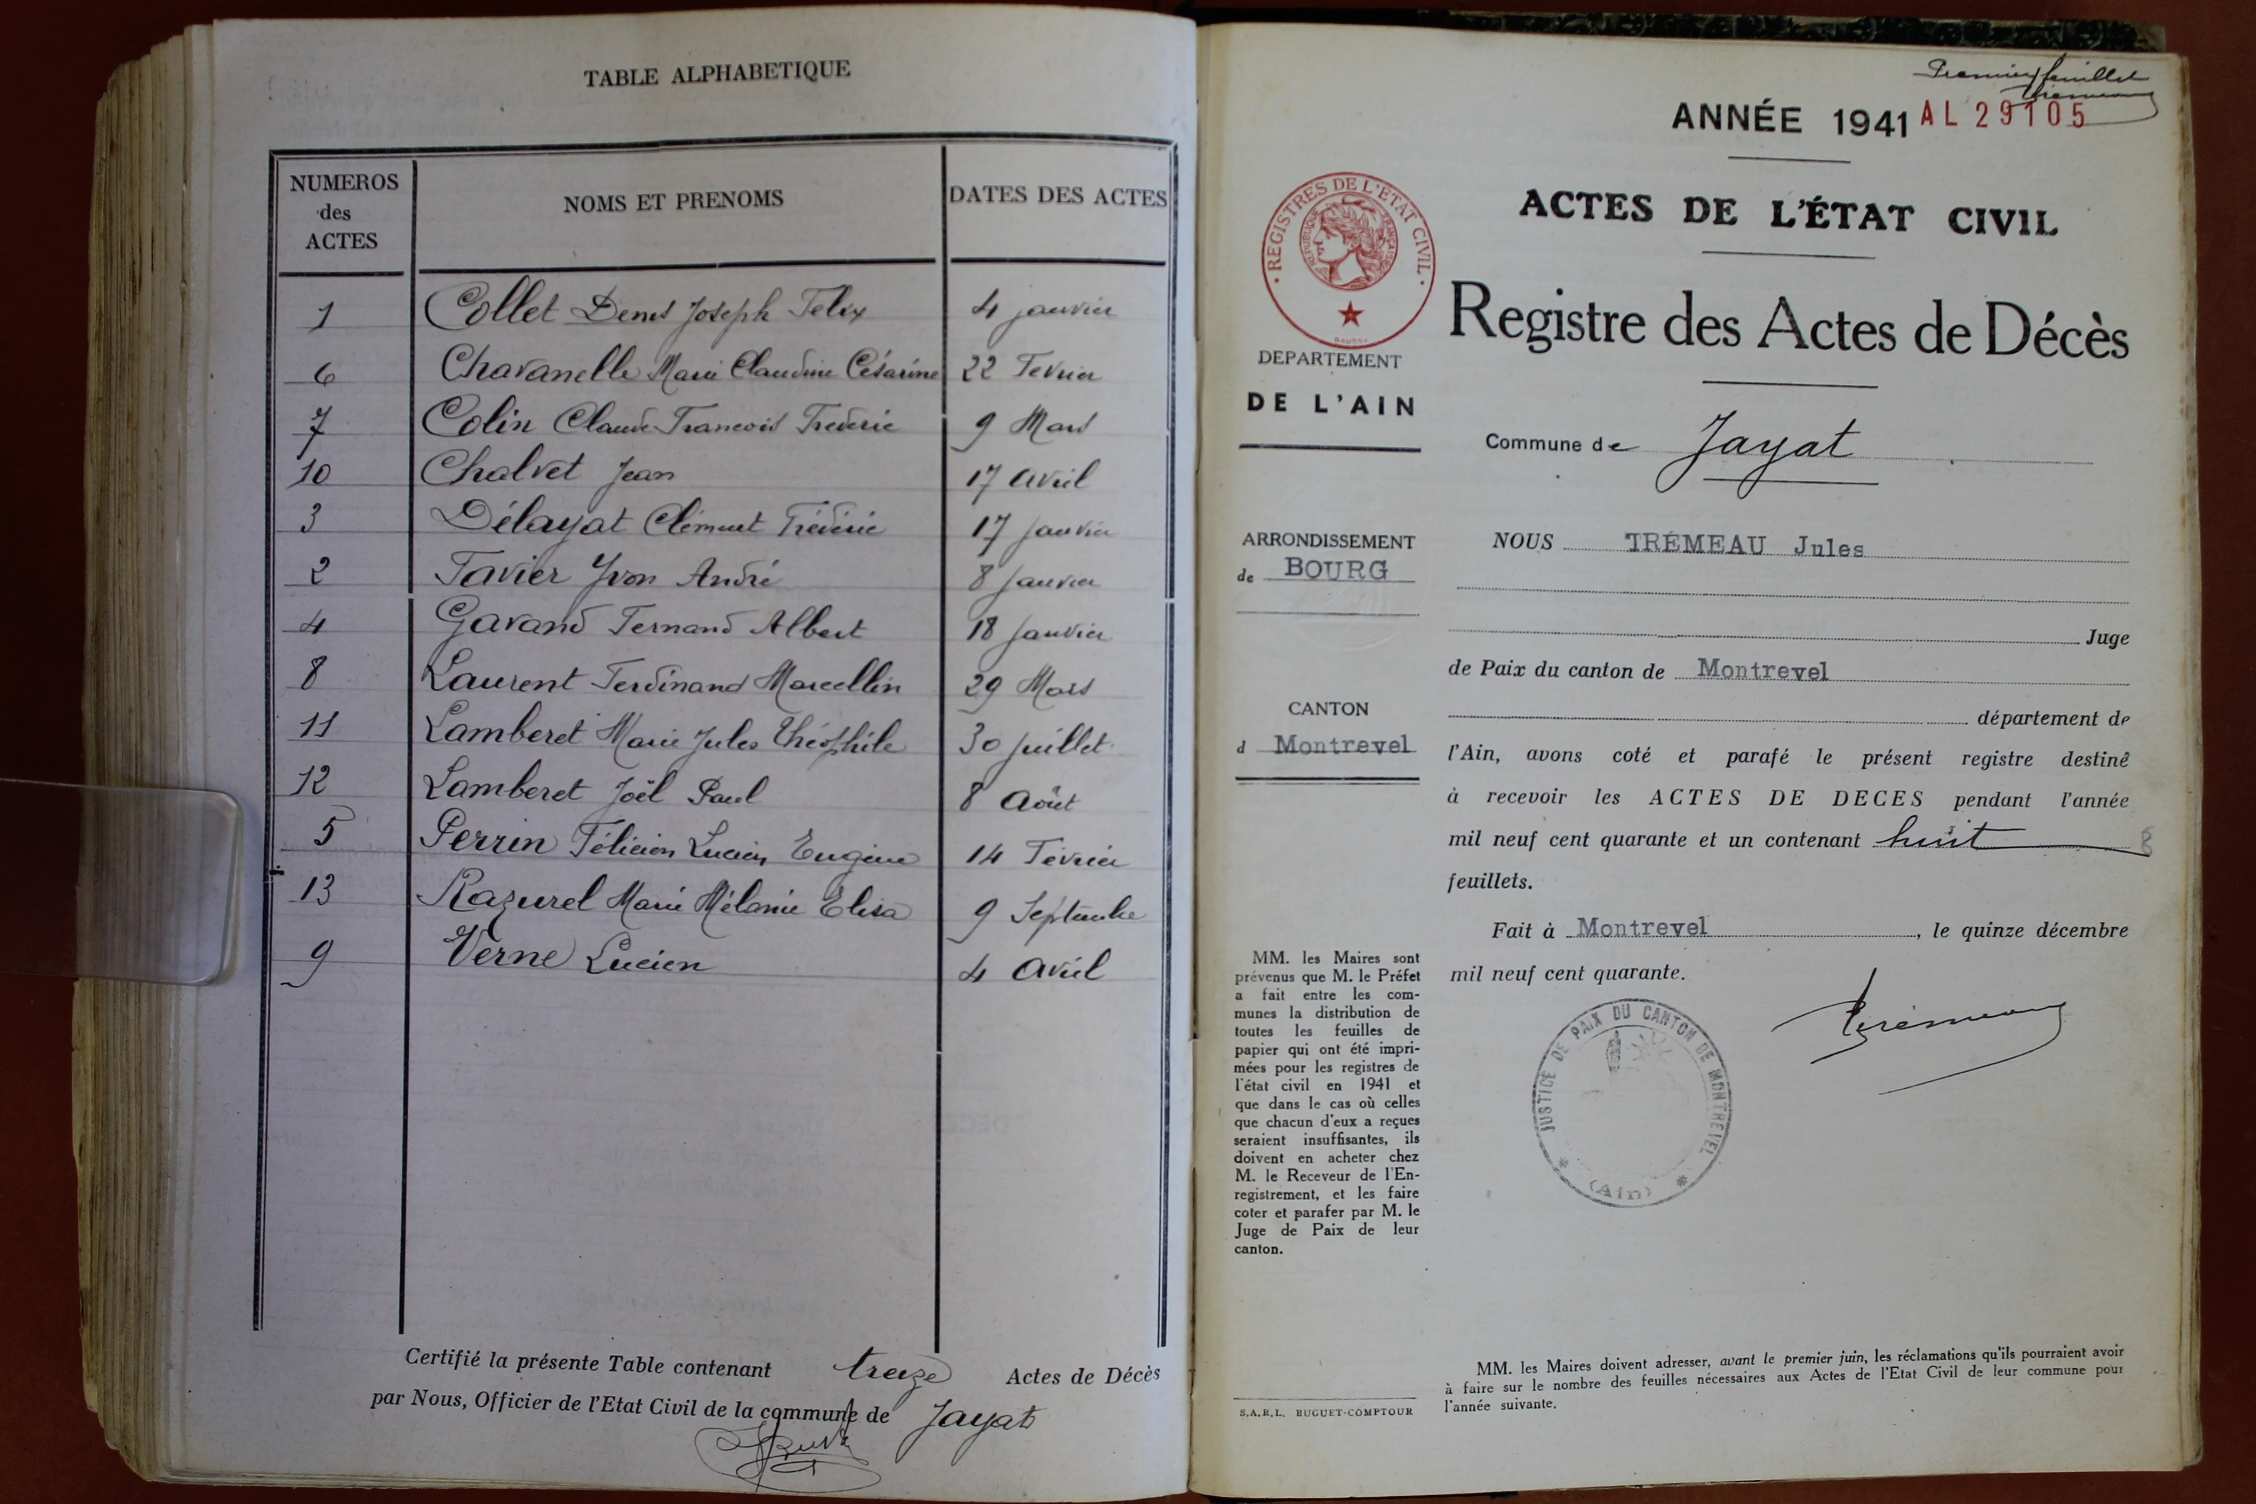 TABLE ALPHABETIQUE
NUMEROS des ACTES NOMS ET PRENOMS DATES DES ACTES
1 Collet Denis Joseph Felix 4 janvier
6 Chavanelle Marie Claudine Césarine 22 Fevrier
7 Colin Claude Francois Frederic 9 Mars
10 Chalvet Jean 17 avril
3 Délayat Clément Fréderic 17 janvier
2 Favier Yvon André 8 janvier
4 Gavand Fernand Albert 18 janvier
8 Laurent Ferdinand Marcellin 29 Mars
11 Lamberet Marie Jules Théophile 30 juillet
12 Lamberet Joël Paul 8 Août
5 Perrin Félicien Lucien Eugène 14 Février
13 Razurel Marie Mélanie Elisa 9 Septembre
9 Verne Lucien 4 avril
Certifié la présente Table contenant treize Actes de Décès
par Nous, Officier de l'Etat Civil de la commune de Jayat
Premier feuillet
ANNÉE 1941 AL 29105
ACTES DE L'ÉTAT CIVIL
Registre des Actes de Décès
· REGISTRES DE L'ETAT CIVIL ·
REPUBLIQUE FRANÇAISE
DEPARTEMENT
DE L'AIN
Commune de Jayat
ARRONDISSEMENT
de BOURG
CANTON
d Montrevel
MM. les Maires sont
prévenus que M. le Préfet
a fait entre les com-
munes la distribution de
toutes les feuilles de
papier qui ont été impri-
mées pour les registres de
l'état civil en 1941 et
que dans le cas où celles
que chacun d'eux a reçues
seraient insuffisantes, ils
doivent en acheter chez
M. le Receveur de l'En-
registrement, et les faire
coter et parafer par M. le
Juge de Paix de leur
canton.
S.A.R.L. BUGUET-COMPTOUR
NOUS TRÉMEAU Jules
Juge
de Paix du canton de Montrevel
département de
l'Ain, avons coté et parafé le présent registre destiné
à recevoir les ACTES DE DECES pendant l'année
mil neuf cent quarante et un contenant huit 8
feuillets.
Fait à Montrevel, le quinze décembre
mil neuf cent quarante.
Trémeau
JUSTICE DE PAIX DU CANTON DE MONTREVEL
(Ain)
MM. les Maires doivent adresser, avant le premier juin, les réclamations qu'ils pourraient avoir
à faire sur le nombre des feuilles nécessaires aux Actes de l'Etat Civil de leur commune pour
l'année suivante.